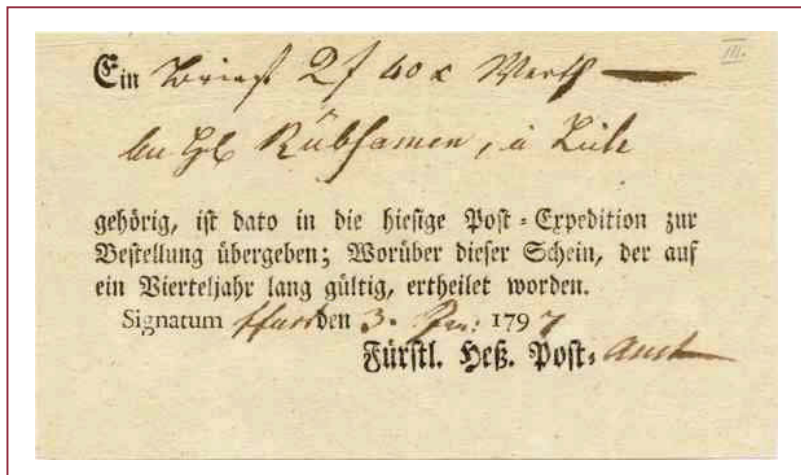 Ein Brief 2 f 40 x Werth
An Rübsamen, à
gehörig, ist dato in die hiesige Post=Expedition zur
Bestellung übergeben; Worüber dieser Schein, der auf
ein Vierteljahr lang gültig, ertheilet worden.
Signatum den 3. 1797
Fürstl. Heß. Post=Amt
III.